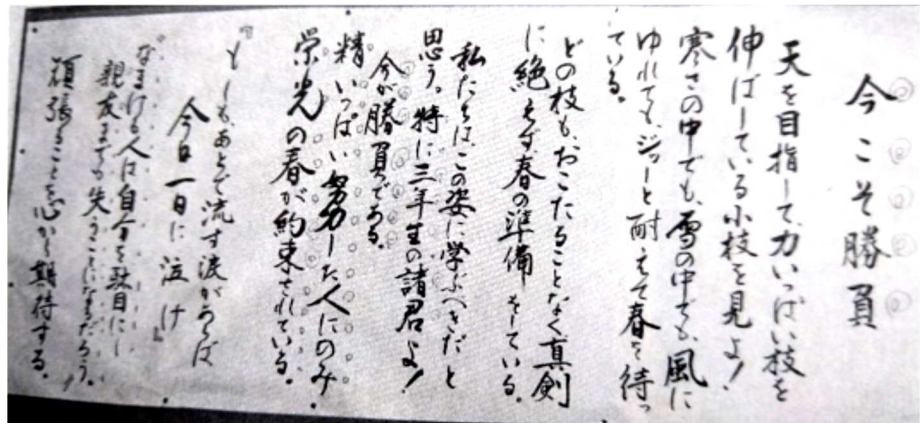 今こそ勝負
天を目指して、力いっぱい枝を
伸ばしている小枝を見よ！
寒さの中でも、雪の中でも、風に
ゆれても、ジッーと耐えて春を待っ
ている。
どの枝も、おこたることなく真剣
に絶えず、春の準備をしている。
私たちは、この姿に学ぶべきだと
思う。特に三年生の諸君よ！
今が勝負である。
精いっぱい努力した人にのみ
栄光の春が約束されている。
『もしもあとで流す涙があらば
今日一日に泣け』
なまける人は自分を駄目にし
親友までも失うことになるだろう。
頑張ることを心から期待する。！